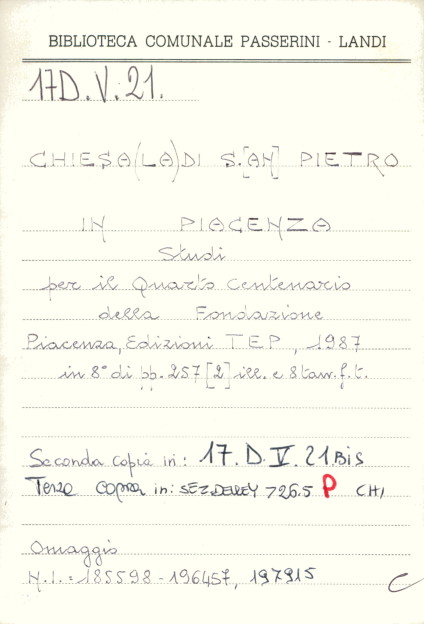 BIBLIOTECA COMUNALE PASSERINI - LANDI
17D.V.21.
CHIESA(LA)DI S.[AN] PIETRO
IN PIACENZA
Studi
per il Quarto Centenario
della Fondazione
Piacenza, Edizioni TEP, 1987
in 8° di pp. 257[2] ill. e 8 tav. f. t.
Seconda copia in: 17. D. V. 21 BIS
Terza copia in: SEZ. DEWEY 726.5 P CHI
Omaggio
N.I. = 185598 - 196457, 197915
C